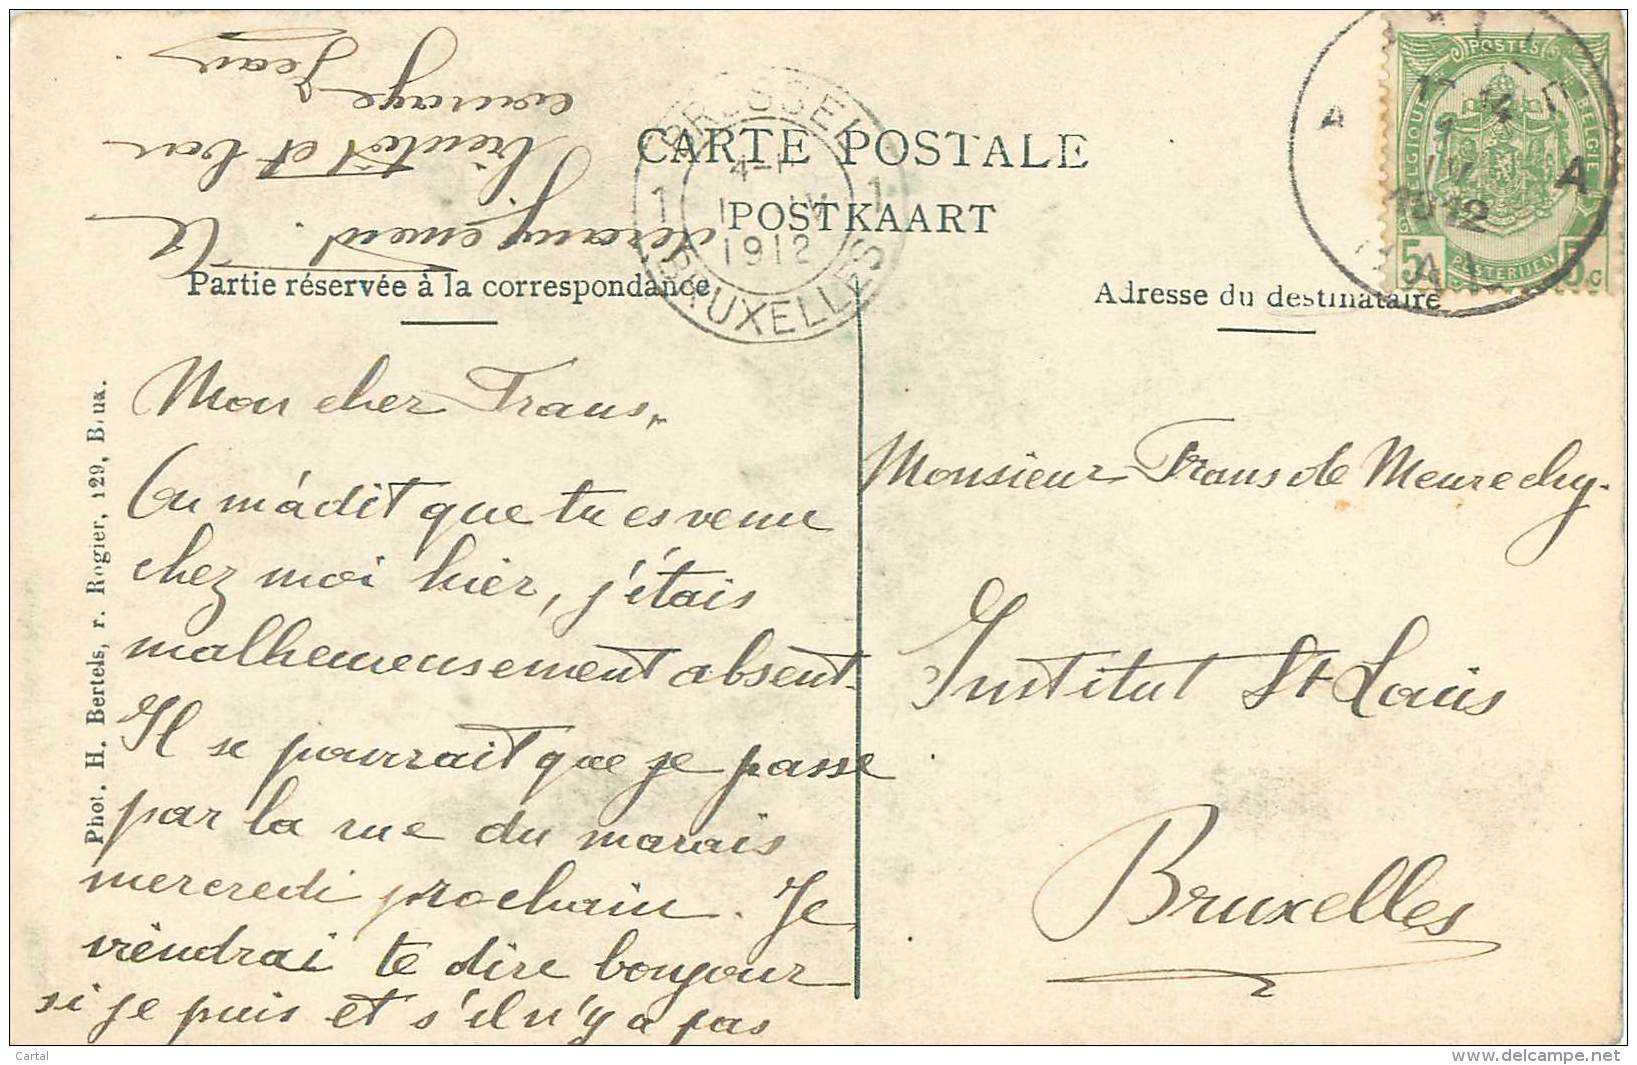 CARTE POSTALE
POSTKAART
Partie réservée à la correspondance
Adresse du destinataire
BRUSSEL
1 1
4-
1912
BRUXELLES
POSTES
BELGIQUE
BELGIE
POSTERIJEN
5 5 c
A A
1912
Phot. H. Bertels, r. Rogier, 129, Brux.
Mon cher Frans,
On m'a dit que tu es venu
chez moi hier, j'étais
malheureusement absent.
Il se pourrait que je passe
par la rue du marais
mercredi prochain. Je
viendrai te dire bonjour
si je puis et s'il n'y a pas
dérangement. A
bientôt et bon
courage
Jean
Monsieur Frans de Meurechy.
Institut St Louis
Bruxelles
Cartal
www.delcampe.net